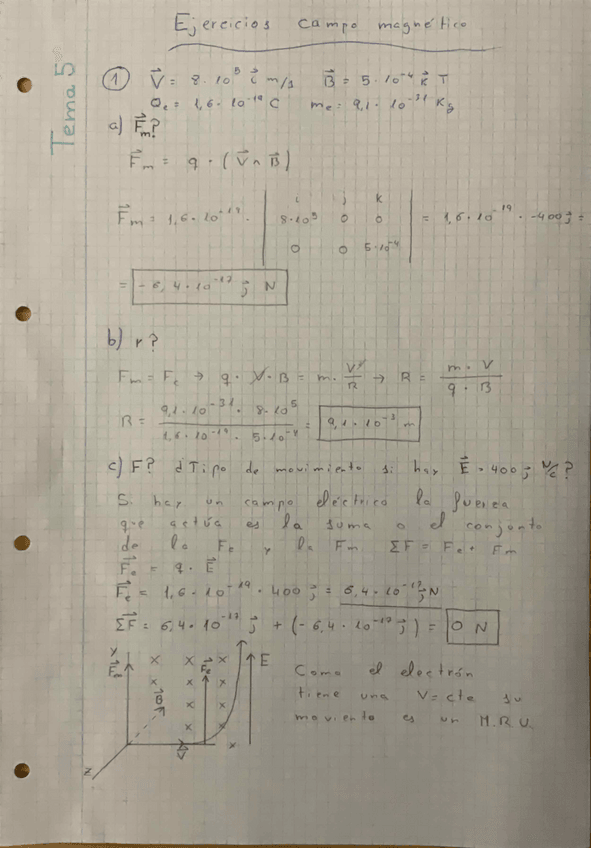 Ejercicios campo magnético
Tema 5
① V⃗ = 8·10⁵ i⃗ m/s B⃗ = 5·10⁻⁴ k⃗ T
Qe = 1,6·10⁻¹⁹ C me = 9,1·10⁻³¹ Kg
a) F⃗m?
F⃗m = q · (V⃗ ∧ B⃗)
i j k
F⃗m = 1,6·10⁻¹⁹ · | 8·10⁵ 0 0 | = 1,6·10⁻¹⁹ · -400 j⃗ =
0 0 5·10⁻⁴
= -6,4·10⁻¹⁷ j⃗ N
b) r?
Fm = Fc → q · V · B = m · V²/R → R = m · V / q · B
R = 9,1·10⁻³¹ · 8·10⁵ / 1,6·10⁻¹⁹ · 5·10⁻⁴ = 9,1·10⁻³ m
c) F? ¿Tipo de movimiento si hay E⃗ = 400 j⃗ N/C?
Si hay un campo eléctrico la fuerza
que actúa es la suma o el conjunto
de la Fe y la Fm ΣF = Fe + Fm
F⃗e = q · E⃗
F⃗e = 1,6·10⁻¹⁹ · 400 j⃗ = 6,4·10⁻¹⁷ j⃗ N
ΣF⃗ = 6,4·10⁻¹⁷ j⃗ + (-6,4·10⁻¹⁷ j⃗) = 0 N
Y x x x E
F⃗e x x F⃗e x
B⃗ x x
x x
V⃗ x
Z
Como el electrón
tiene una V=cte su
moviento es un M.R.U.